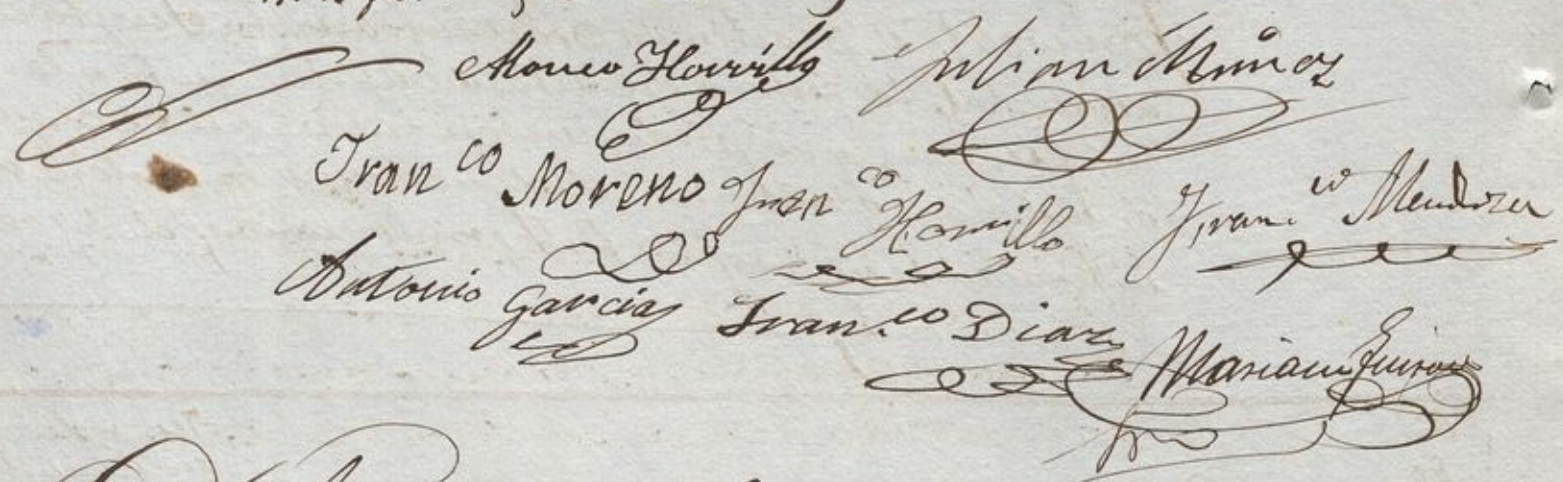 Horrillo Julian Muñoz
Fran co Moreno co Horrillo Fran. co Mendoza
Antonio Garcia Fran.co Diaz
Mariano